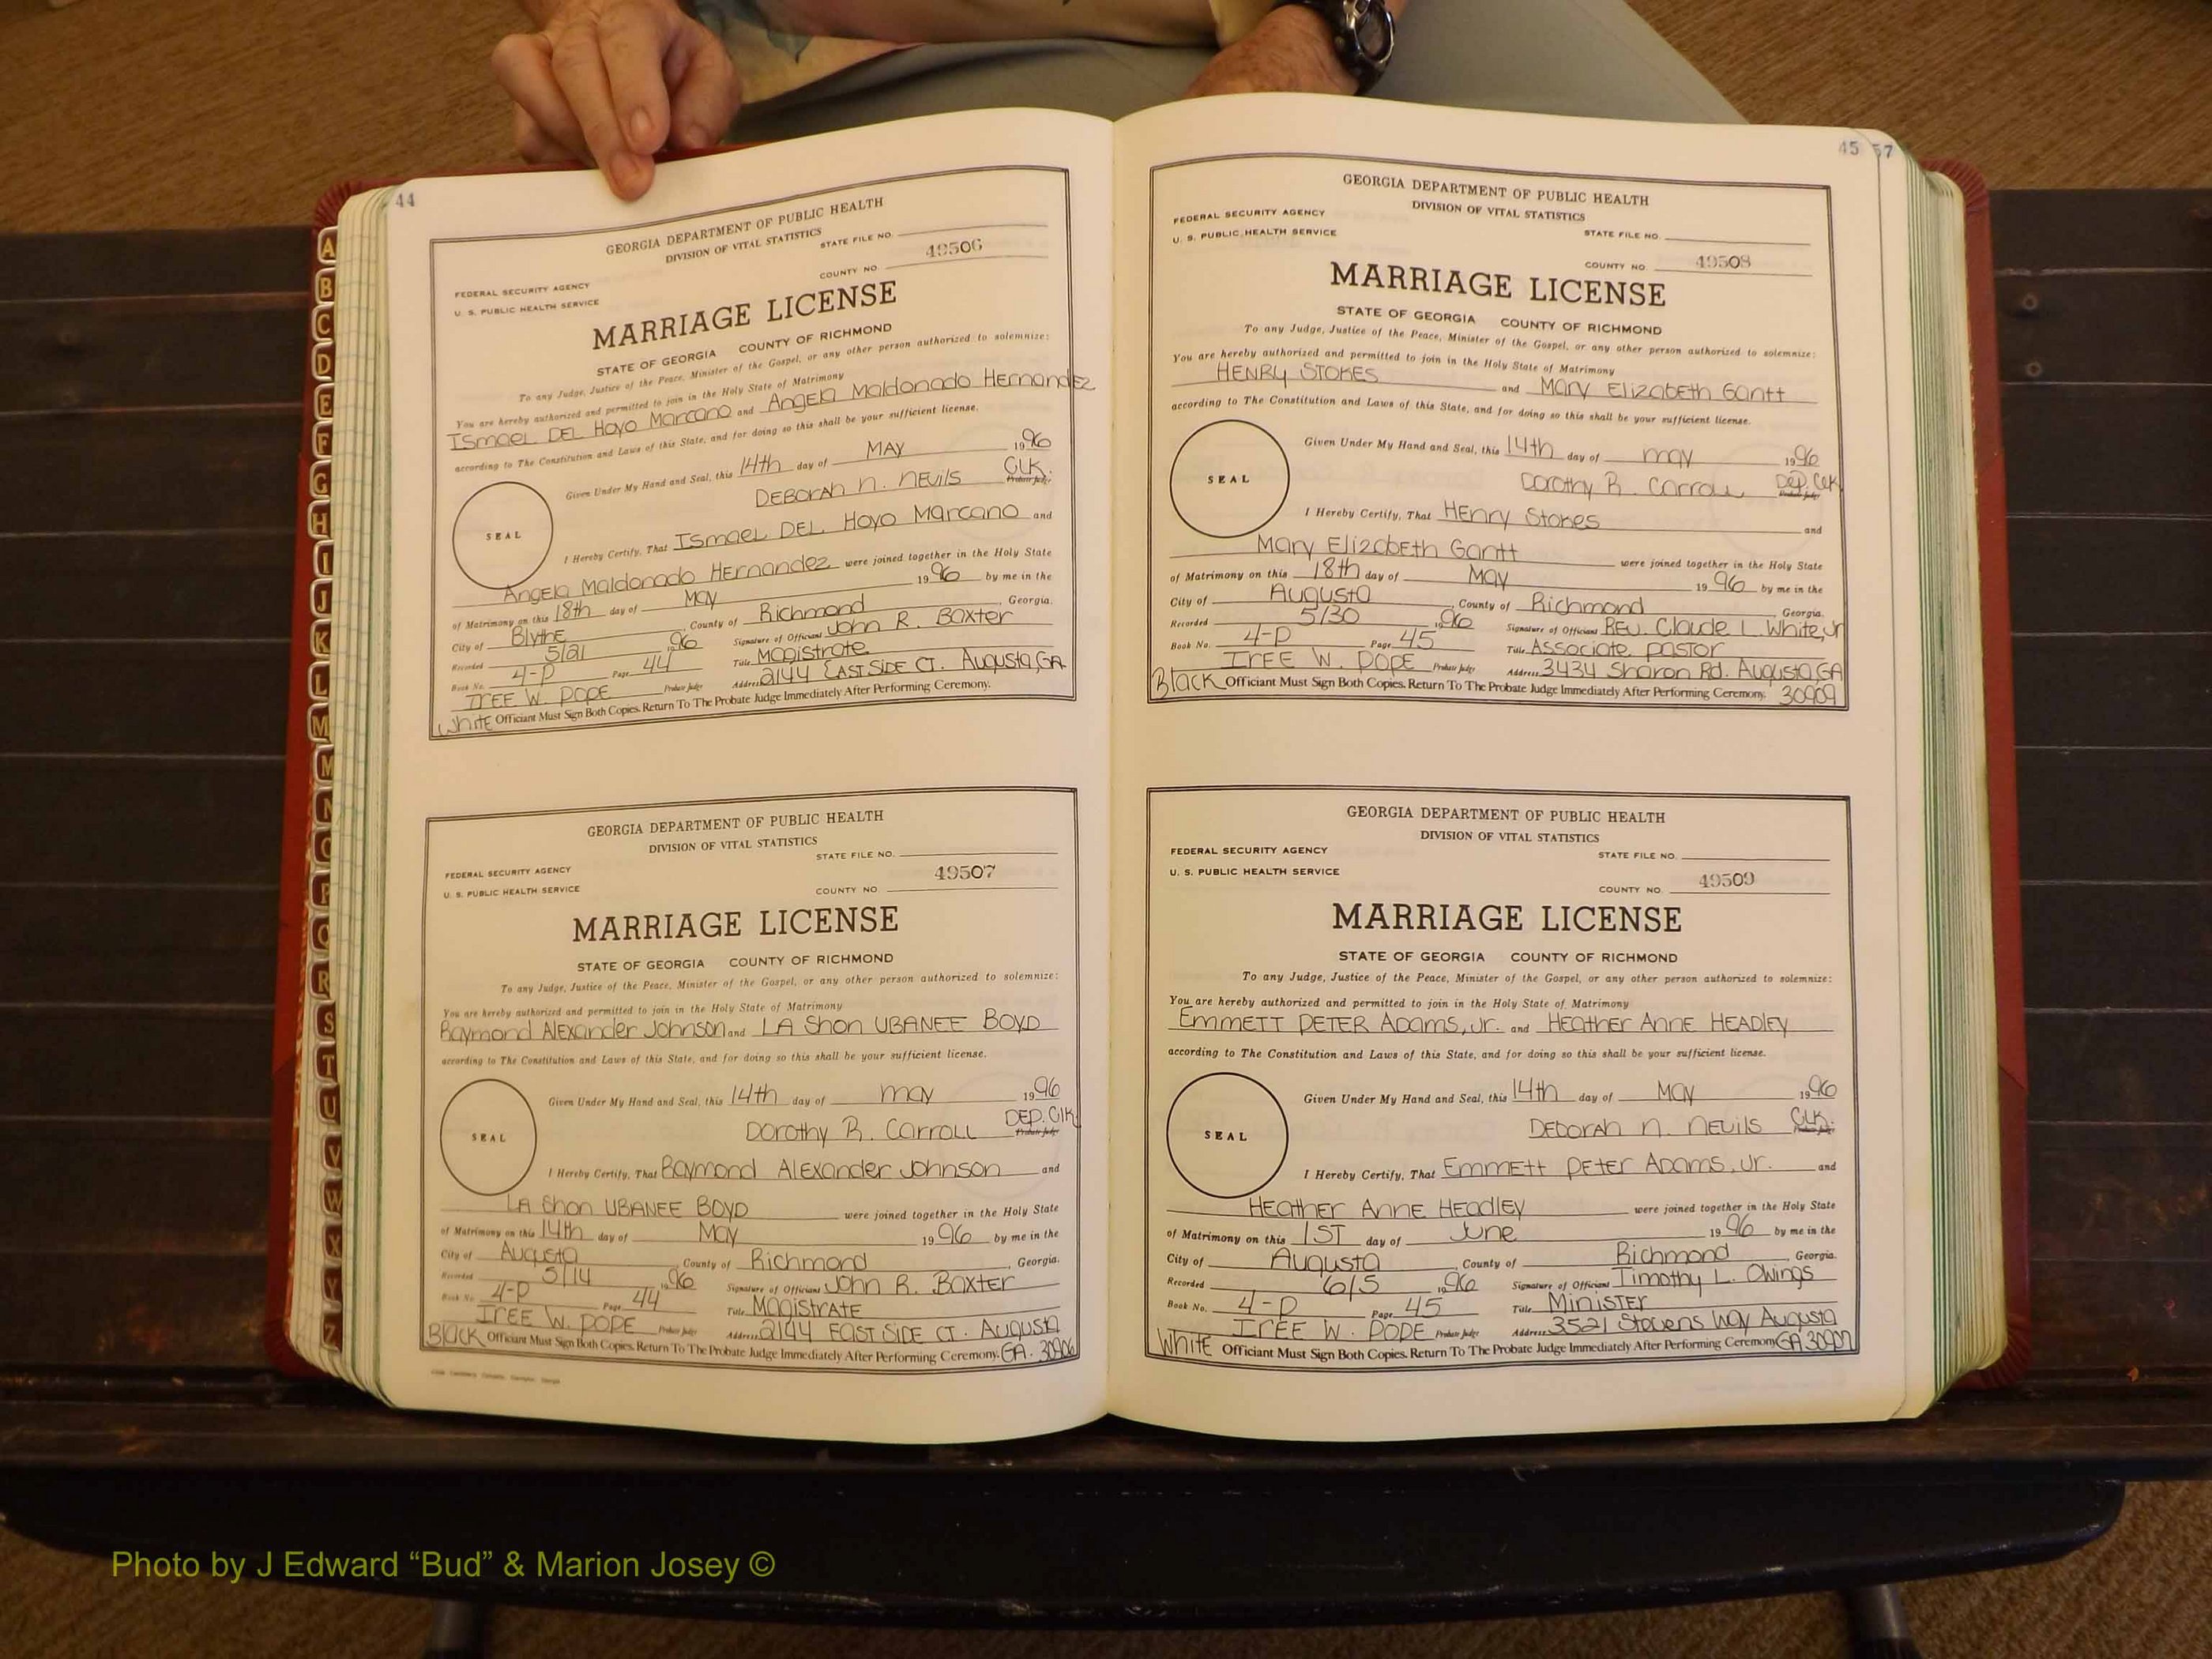 44
GEORGIA DEPARTMENT OF PUBLIC HEALTH
DIVISION OF VITAL STATISTICS
STATE FILE NO.
COUNTY NO. 49506
FEDERAL SECURITY AGENCY
U. S. PUBLIC HEALTH SERVICE
MARRIAGE LICENSE
STATE OF GEORGIA COUNTY OF RICHMOND
To any Judge, Justice of the Peace, Minister of the Gospel, or any other person authorized to solemnize:
You are hereby authorized and permitted to join in the Holy State of Matrimony
Ismael DEL Hoyo Marcano and Angela Maldonado Hernandez
according to The Constitution and Laws of this State, and for doing so this shall be your sufficient license.
Given Under My Hand and Seal, this 14th day of MAY 1996
SEAL
DEBORAH N. NEVILS CLK. Probate Judge
I Hereby Certify, That Ismael DEL Hoyo Marcano and
Angela Maldonado Hernandez were joined together in the Holy State
of Matrimony on this 18th day of May 1996 by me in the
City of Blythe, County of Richmond, Georgia.
Recorded 5/21 1996 Signature of Official John R. Baxter
Book No. 4-P Page 44 Title Magistrate
IREE W. POPE Probate Judge Address 2144 EAST SIDE CT. Augusta, GA.
White Officiant Must Sign Both Copies. Return To The Probate Judge Immediately After Performing Ceremony.
GEORGIA DEPARTMENT OF PUBLIC HEALTH
DIVISION OF VITAL STATISTICS
STATE FILE NO.
FEDERAL SECURITY AGENCY
U. S. PUBLIC HEALTH SERVICE
COUNTY NO. 49507
MARRIAGE LICENSE
STATE OF GEORGIA COUNTY OF RICHMOND
To any Judge, Justice of the Peace, Minister of the Gospel, or any other person authorized to solemnize:
You are hereby authorized and permitted to join in the Holy State of Matrimony
Raymond Alexander Johnson and LA Shon UBANEE BOYD
according to The Constitution and Laws of this State, and for doing so this shall be your sufficient license.
Given Under My Hand and Seal, this 14th day of may 1996
SEAL
Dorothy R. Carroll DEP. Clk. Probate Judge
I Hereby Certify, That Raymond Alexander Johnson and
LA Shon UBANEE BOYD were joined together in the Holy State
of Matrimony on this 14th day of May 1996 by me in the
City of Augusta, County of Richmond, Georgia.
Recorded 5/14 1996 Signature of Official John R. Baxter
Book No. 4-P Page 44 Title MagistratE
IREE W. POPE Probate Judge Address 2144 EAST SIDE CT. Augusta
Black Officiant Must Sign Both Copies. Return To The Probate Judge Immediately After Performing Ceremony. GA. 30906
45 57
GEORGIA DEPARTMENT OF PUBLIC HEALTH
DIVISION OF VITAL STATISTICS
FEDERAL SECURITY AGENCY
U. S. PUBLIC HEALTH SERVICE
STATE FILE NO.
COUNTY NO. 49508
MARRIAGE LICENSE
STATE OF GEORGIA COUNTY OF RICHMOND
To any Judge, Justice of the Peace, Minister of the Gospel, or any other person authorized to solemnize:
You are hereby authorized and permitted to join in the Holy State of Matrimony
HENRY STOKES and Mary Elizabeth Gantt
according to The Constitution and Laws of this State, and for doing so this shall be your sufficient license.
Given Under My Hand and Seal, this 14th day of may 1996
SEAL
Dorothy R. Carroll Dep. Clk. Probate Judge
I Hereby Certify, That Henry Stokes and
Mary Elizabeth Gantt were joined together in the Holy State
of Matrimony on this 18th day of May 1996 by me in the
City of Augusta, County of Richmond, Georgia.
Recorded 5/30 1996 Signature of Official REV. Claude L. White, Jr
Book No. 4-P Page 45 Title Associate pastor
IREE W. POPE Probate Judge Address 3434 Sharon Rd. Augusta, GA
Black Officiant Must Sign Both Copies. Return To The Probate Judge Immediately After Performing Ceremony. 30909
GEORGIA DEPARTMENT OF PUBLIC HEALTH
DIVISION OF VITAL STATISTICS
FEDERAL SECURITY AGENCY
STATE FILE NO.
U. S. PUBLIC HEALTH SERVICE
COUNTY NO. 49509
MARRIAGE LICENSE
STATE OF GEORGIA COUNTY OF RICHMOND
To any Judge, Justice of the Peace, Minister of the Gospel, or any other person authorized to solemnize:
You are hereby authorized and permitted to join in the Holy State of Matrimony
Emmett PETER Adams, Jr. and Heather Anne HEADLEY
according to The Constitution and Laws of this State, and for doing so this shall be your sufficient license.
Given Under My Hand and Seal, this 14th day of MAY 1996
SEAL
DEBORAH N. NEVILS CLK. Probate Judge
I Hereby Certify, That Emmett Peter Adams, Jr. and
HEATHER ANNE HEADLEY were joined together in the Holy State
of Matrimony on this 1ST day of June 1996 by me in the
City of Augusta, County of Richmond, Georgia.
Recorded 6/5 1996 Signature of Official Timothy L. Owings
Book No. 4-P Page 45 Title Minister
IREE W. POPE Probate Judge Address 3521 Stevens Way Augusta
White Officiant Must Sign Both Copies. Return To The Probate Judge Immediately After Performing Ceremony. GA 30907
A
B
C
D
E
F
G
H
I
J
K
L
M
M
N
O
P
Q
R
S
T
U
V
W
X
Y
Z
Photo by J Edward “Bud” & Marion Josey ©